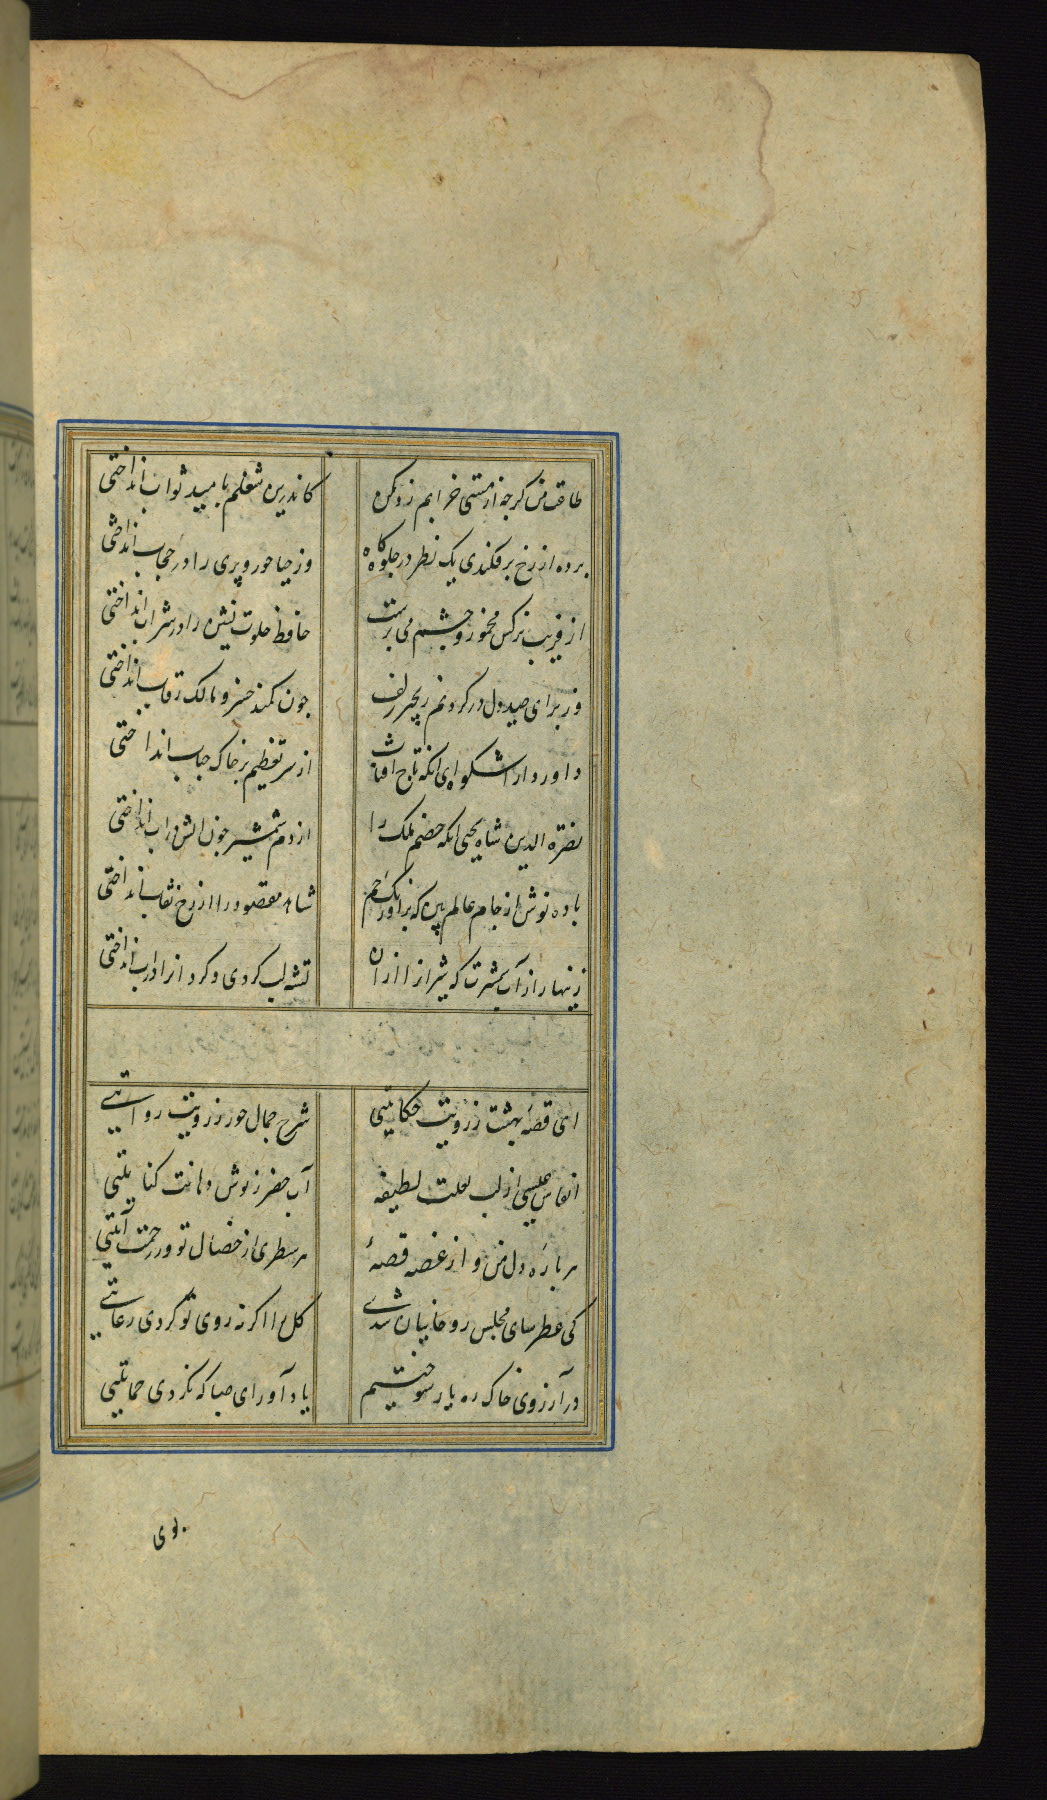 طاعت من گرچه از مستی خرابم رد مکن کاندرین شغلم بامید ثواب انداختی
پرده از رخ برفکندی یک نظر در جلوه‌گاه وز حیا حور و پری را در حجاب انداختی
از فریب نرگس مخمور و چشم می پرست حافظ خلوت نشین را در شراب انداختی
وز برای صید دل در گردنم زنجیر زلف چون کمند خسرو مالک رقاب انداختی
داور دارا شکوه ای آنکه تاج آفتاب از سر تعظیم بر خاک جناب انداختی
نصرة الدین شاه یحیی آنکه خصم ملک را از دم شمشیر چون آتش در آب انداختی
باده نوش از جام عالم بین که بر اورنگ جم شاهد مقصود را از رخ نقاب انداختی
زینهار از آب شمشیرت که شیران را از آن تشنه لب کردی و گردان را در آب انداختی
ای قصه بهشت ز رویت حکایتی شرح جمال حور ز رویت روایتی
انفاس عیسی از لب لعلت لطیفه آب خضر ز نوش دهانت کنایتی
هر پاره دل من و از غصه قصهٔ هر سطری از خصال تو در رحمت آیتی
کی عطرسای مجلس روحانیان شدی گل را اگر نه روی تو کردی رعایتی
در آرزوی خاک ره یار سوختیم یاد آور ای صبا که نکردی حمایتی
بوی